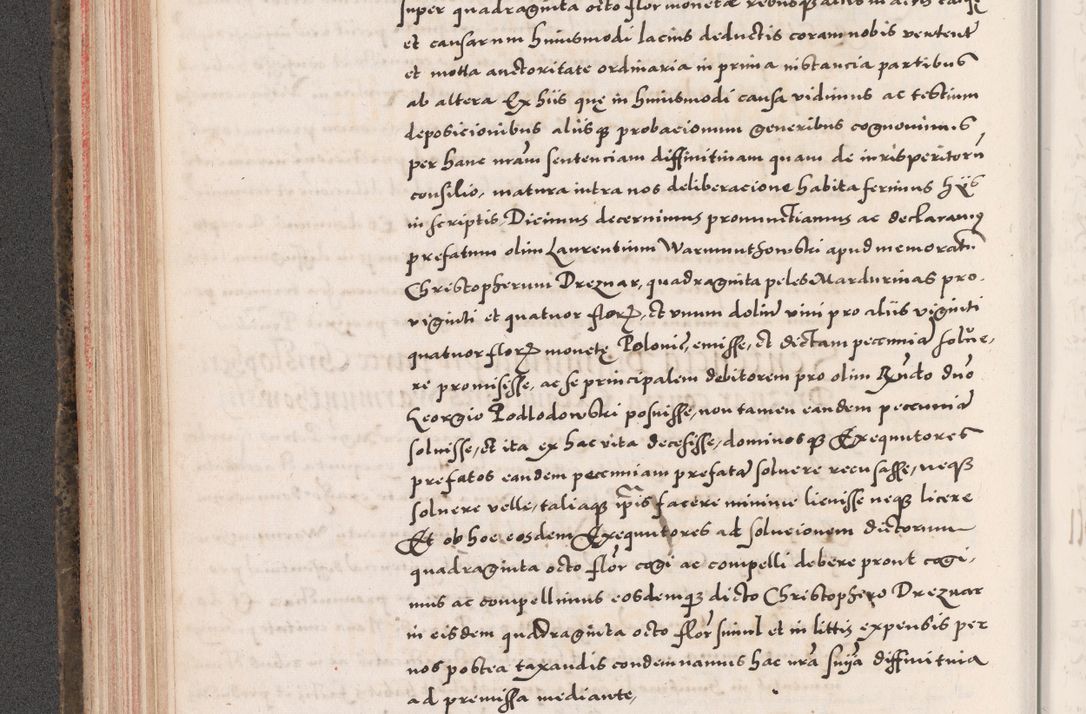 super quadraginta octo flor monetæ rebusq aliis in actis
et causarum huiusmodi lacius deductis coram nobis vertent
et motta auctoritate ordinaria in prima instancia partibus
ab altera Ex hiis quę in huiusmodi causa vidimus ac testium
deposicionibus aliisq probacionum generibus cognouimus
per hanc nrām sentenciam diffinitiuam quam de iurisperitorū
consilio, matura intra nos deliberacione habita ferimus hijs
in scriptis Dicimus decernimus pronunctiamus ac declaramus
prefatum olim Laurentium Warmunthowski apud memoratū
Christopherum Dreznar, quadraginta peles Mardurinas pro
viginti et quatuor florȝ, et vnum dolium vini pro aliis viginti
quatuor florȝ monetę Polonic, emisse, et dictam pecuniā solue,
re promisisse, ac se principalem debitorem pro olim Rūdo dnō
Georgio Podlodowski posuisse, non tamen eandem pecuniā
soluisse, et ita ex hac vita decessisse, dominosq Exequutores
prefatos eandem pecuniam prefatā soluere recusasse, neqȝ
soluere velle, taliaqȝ ip̄is facere minime licuisse neqȝ licere
Et ob hoc eosdem Exequutores ad solucionem dictorum
quadraginta octo flor cogi ac compelli debere prout cogi,
mus ac compellimus eosdemqȝ dicto Christophero Dreznar
in eisdem quadraginta octo flor simul et in littis expensis per
nos postea taxandis condemnamus hac nrā snīa diffinitiua
ad premissa mediante,